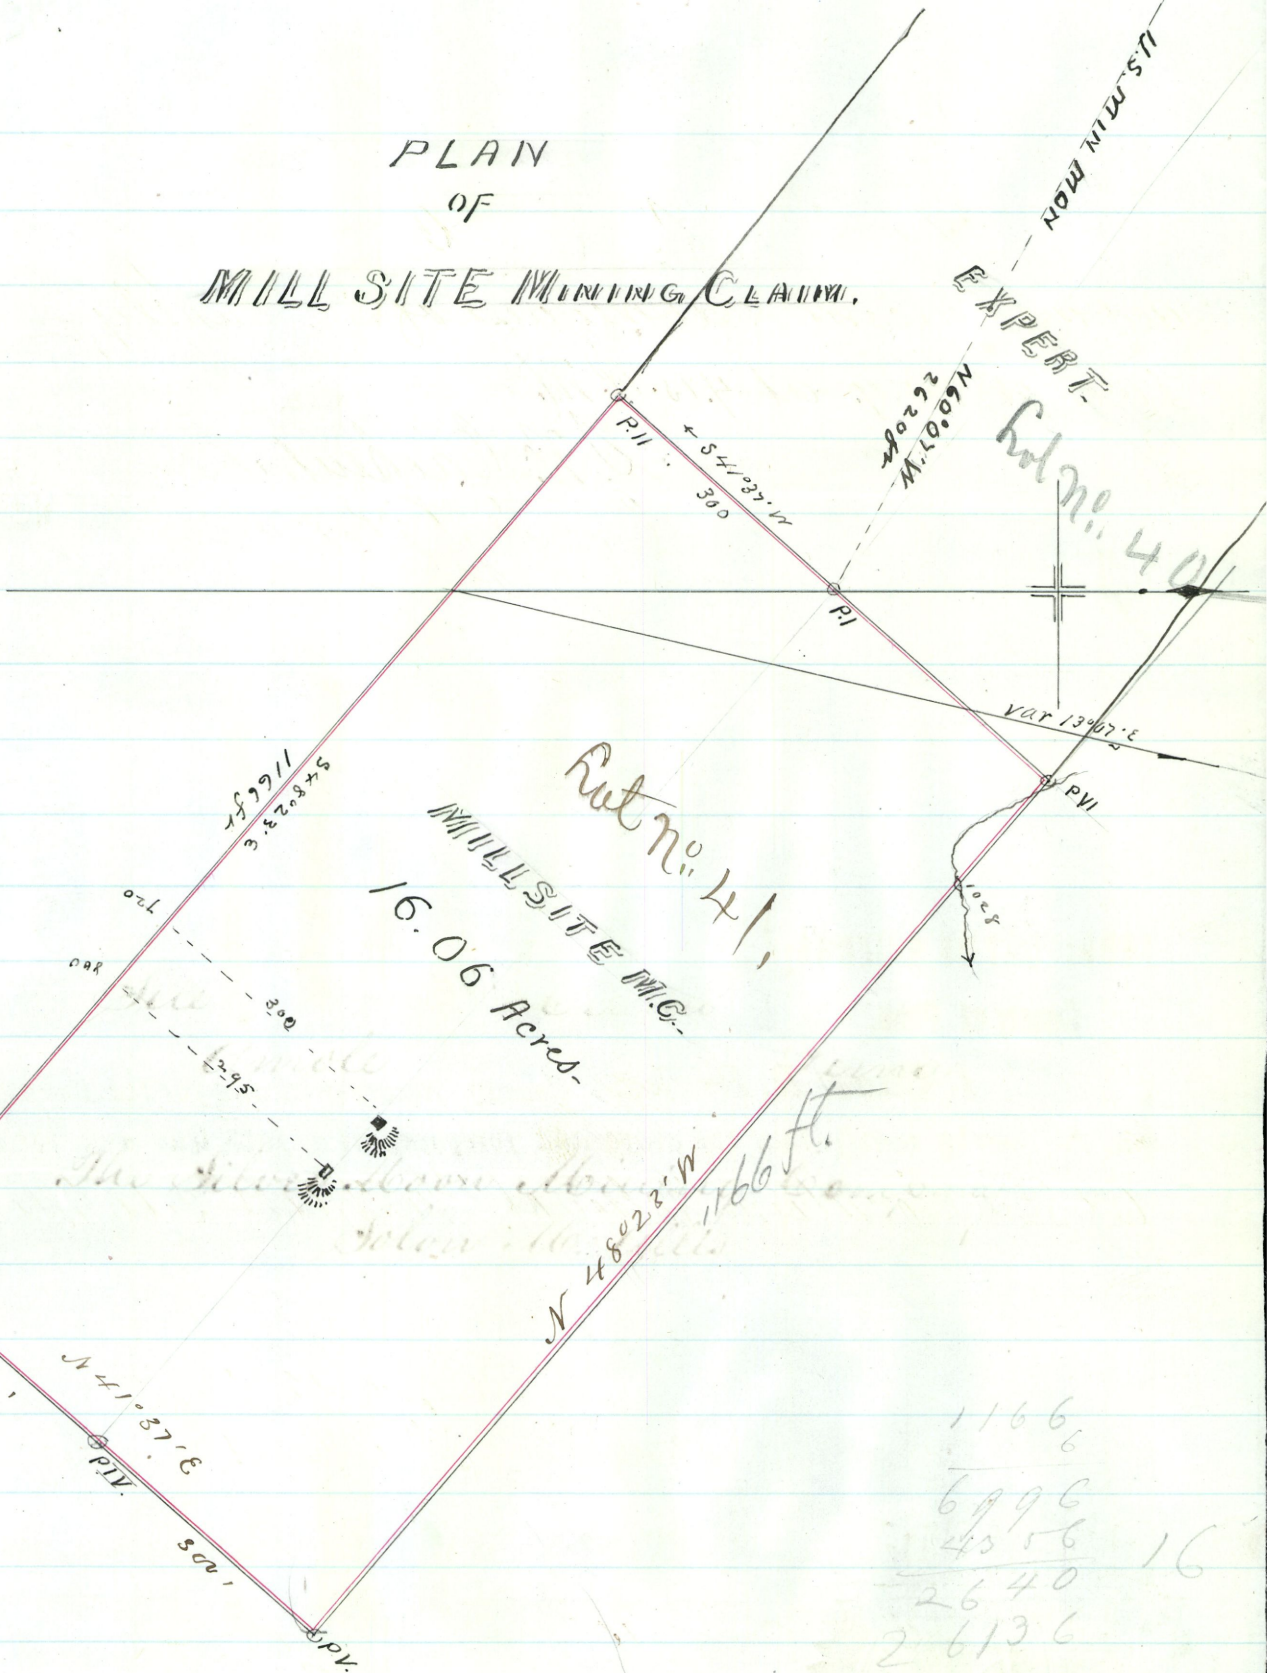 PLAN
OF
MILL SITE MINING CLAIM.
U.S. MIN MON
EXPERT.
Lot No. 40
N60°07'W
2620 ft
P.II
S41°37'W
300
P.I
Var 13°07'E
PVI
1028
S48°23'E
1166 ft
Lot No. 41.
MILL SITE M.C.
16.06 Acres
720
300
295
N 48°23'W
1166 ft.
N 41°37'E
PIV.
300'
PV.
1166
6
6996
4356
2640
26136
16